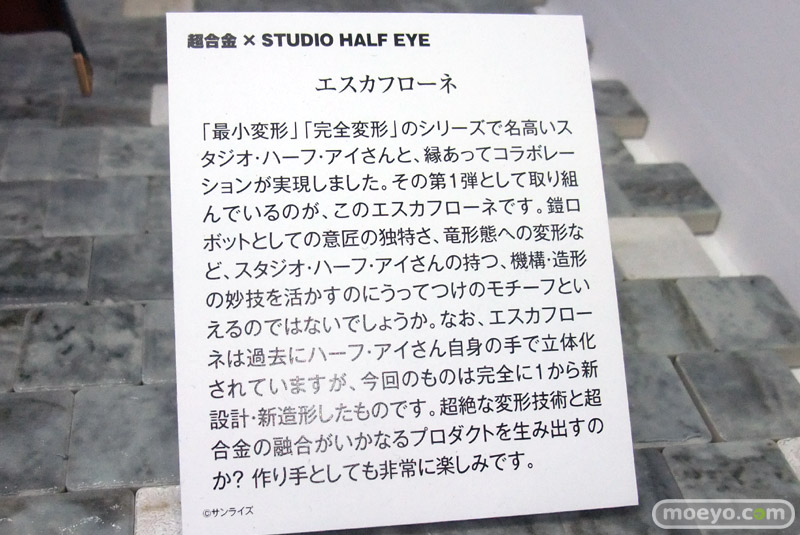 超合金 × STUDIO HALF EYE
エスカフローネ
「最小変形」「完全変形」のシリーズで名高いス
タジオ・ハーフ・アイさんと、縁あってコラボレー
ションが実現しました。その第1弾として取り組
んでいるのが、このエスカフローネです。鎧ロ
ボットとしての意匠の独特さ、竜形態への変形な
ど、スタジオ・ハーフ・アイさんの持つ、機構・造形
の妙技を活かすのにうってつけのモチーフとい
えるのではないでしょうか。なお、エスカフロー
ネは過去にハーフ・アイさん自身の手で立体化
されていますが、今回のものは完全に1から新
設計・新造形したものです。超絶な変形技術と超
合金の融合がいかなるプロダクトを生み出すの
か? 作り手としても非常に楽しみです。
©サンライズ
moeyo.com